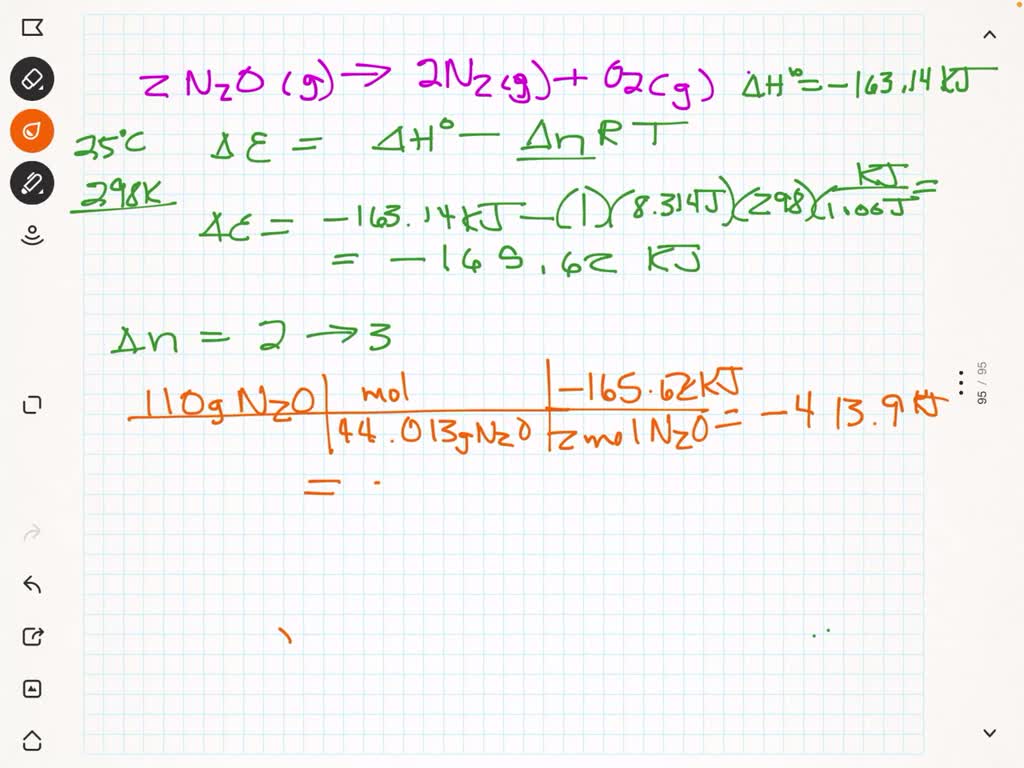 2 N2O (g) → 2N2(g) + O2(g) ΔH° = -163.14 KJ
25°C ΔE = ΔH° - Δn R T
298K
ΔE = -163.14 KJ - (1)(8.314J)(298)(KJ/1.00J) =
= -165.62 KJ
Δn = 2 → 3
110g N2O | mol | -165.62 KJ
44.013g N2O | 2 mol N2O = -413.9 KJ
=
95 / 95